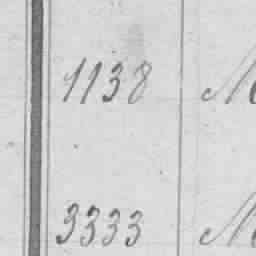 1138 M
3333 M